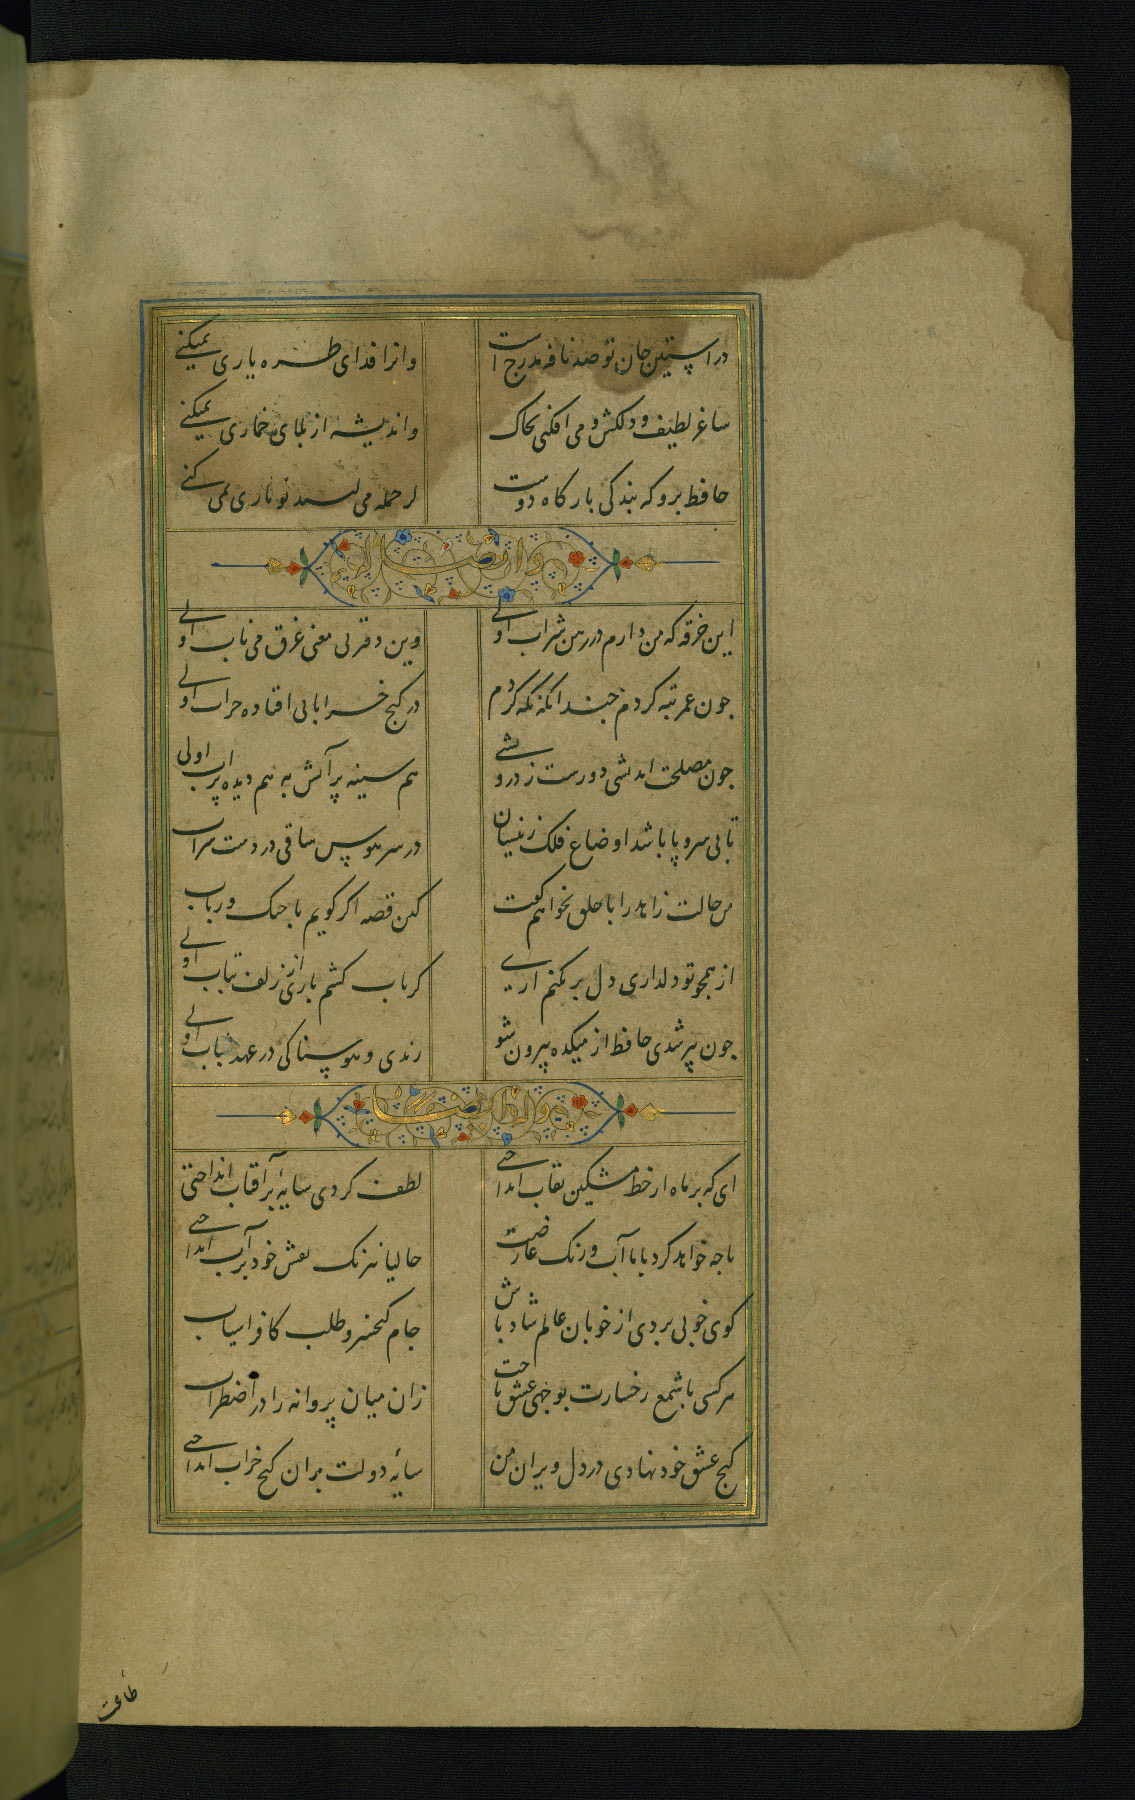 در آستین جان تو صد نافه مدرج است وانرا فدای طره یاری نمیکنی
ساغر لطیف و دلکش و می افکنی بخاک واندیشه از بلای خماری نمیکنی
حافظ برو که بندکی بارکاه دوست کر جمله می کنند تو باری نمی کنی
وله ایضا
این خرقه که من دارم در رهن شراب اولی وین دفتر بی معنی غرق می ناب اولی
جون عمر تبه کردم جندانکه نکه کردم در کنج خراباتی افتاده خراب اولی
جون مصلحت اندیشی دورست ز درویشی هم سینه پر آتش به هم دیده پر آب اولی
تا بی سر و پا باشد اوضاع فلک زینسان در سر هوس ساقی در دست شراب
من حالت زاهد را با خلق نخواهم کفت کین قصه اکر کویم با جنک و رباب
از همجو تو دلداری دل بر نکنم آری کر تاب کشم باری زان زلف بتاب اولی
جون پیر شدی حافظ از میکده بیرون شو رندی و هوسناکی در عهد شباب اولی
وله ایضا
ای که بر ماه از خط مشکین نقاب انداختی لطف کردی سایهٔ بر آفتاب انداختی
تا جه خواهد کرد با ما آب و رنک عارضت حالیا نیرنک نقش خود بر آب انداختی
کوی خوبی بردی از خوبان عالم شاد باش جام کیخسرو طلب کافراسیاب
هر کسی با شمع رخسارت بوجهی عشق باخت زان میان پروانه را در اضطراب
کنج عشق خود نهادی در دل ویران من سایهٔ دولت بران کنج خراب انداختی
طاعت